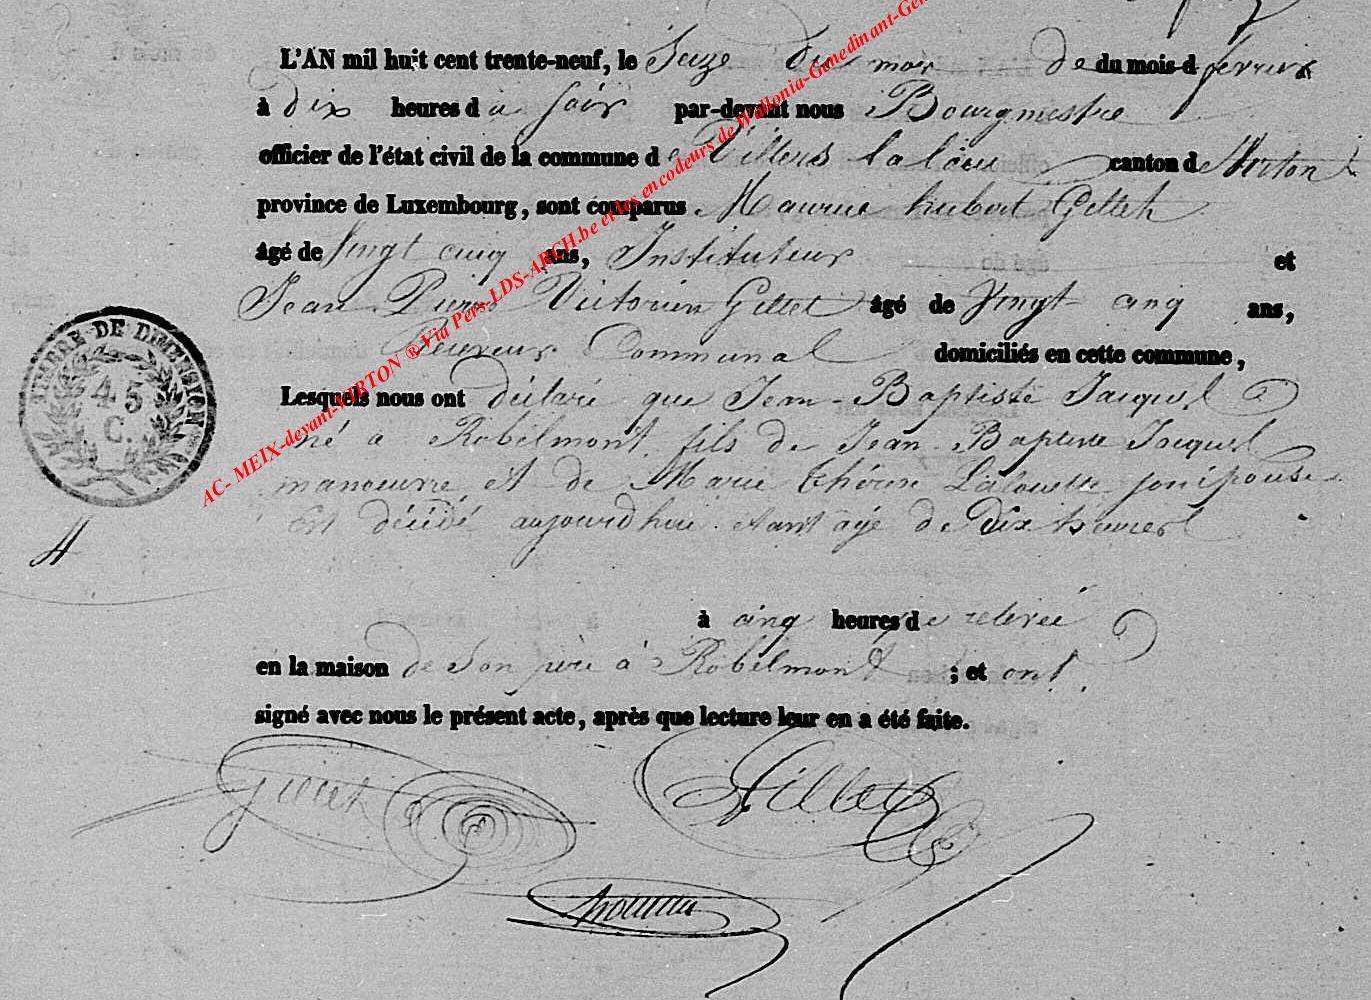 L'AN mil huit cent trente-neuf, le Seize du mois de du mois d fevrier
à dix heures d u soir par-devant nous Bourgmestre
officier de l'état civil de la commune de Villers laloue canton d Virton
province de Luxembourg, sont comparus Maurice hubert Gillet
âgé de Vingt cinq ans, Instituteur et
Jean Pierre Victorien Gillet âgé de Vingt cinq ans,
Receveur Communal domiciliés en cette commune,
Lesquels nous ont déclaré que Jean-Baptiste Jacquet
né à Robelmont, fils de Jean-Baptiste Jacquet
manoeuvre et de Marie thérèse Lalouette son épouse
est décédé aujourd'hui étant agé de Dix
à cinq heures de relevée
en la maison de Son père à Robelmont ; et ont
signé avec nous le présent acte, après que lecture leur en a été faite.
Gillet Gillet
TIMBRE DE DIMENSION
45
C.
AC- MEIX-devant-VIRTON ® Via Pers-LDS-ARCH.be et les encodeurs de Wallonia-Genedinant-Gen